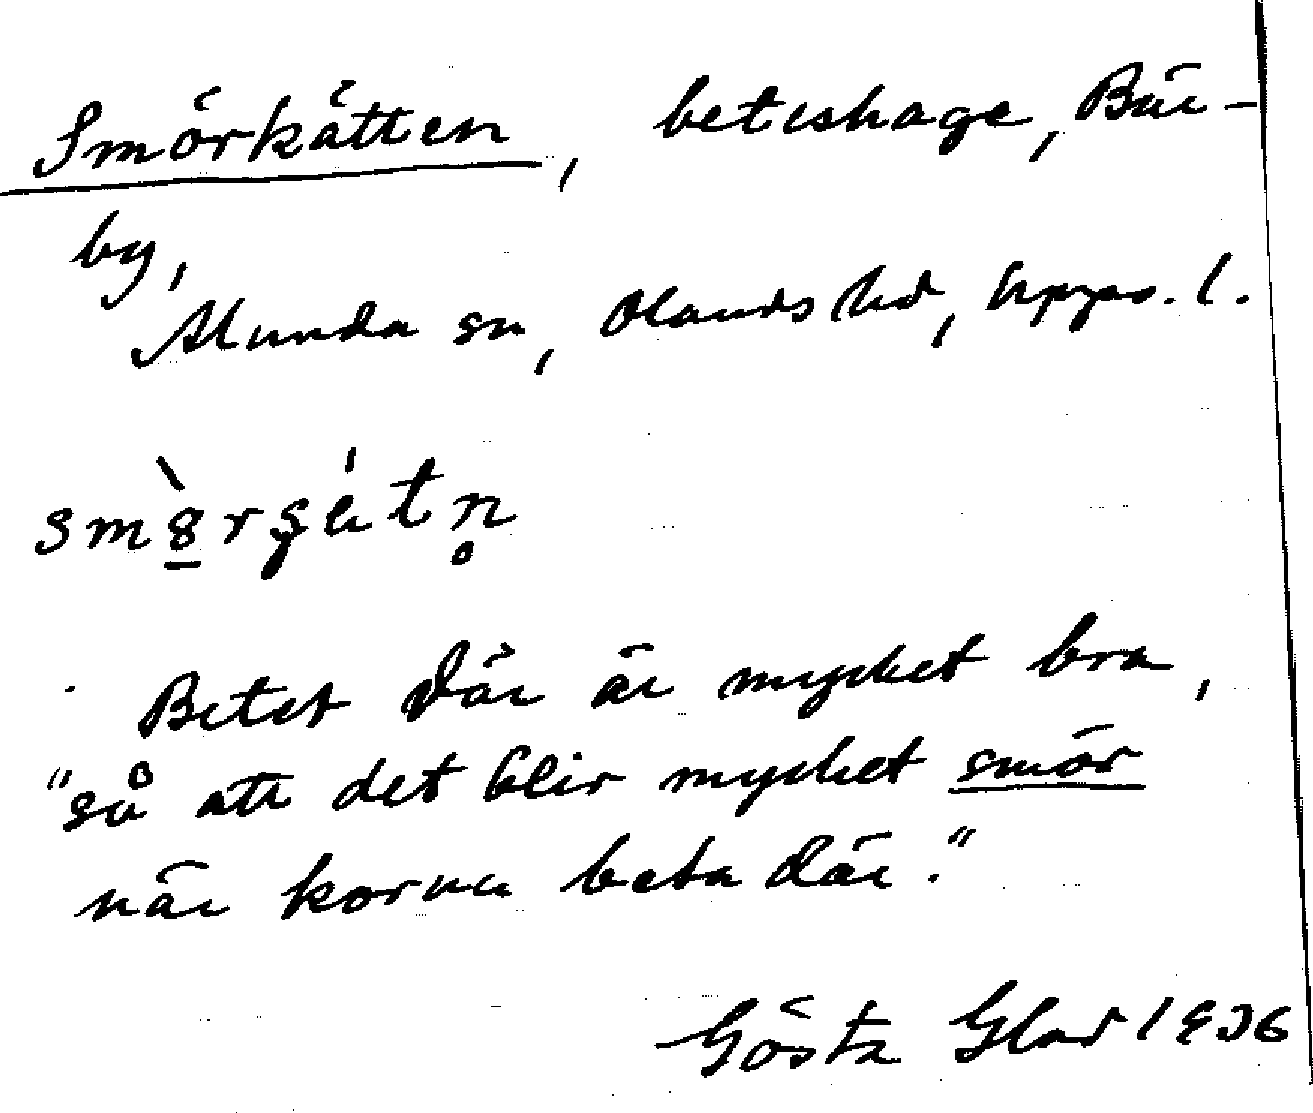 Smörkätten, beteshage, Bär-
by,
Alunda sn, Olands hd, Upps. l.
Betet där är mycket bra,
"så att det blir mycket smör
när korna beta där."
Gösta Glad 1936